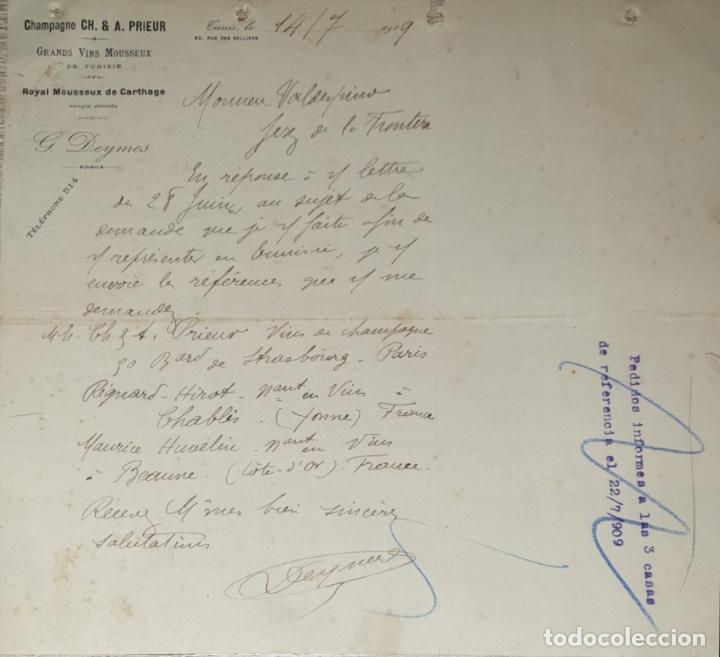 Champagne CH. & A. PRIEUR
GRANDS VINS MOUSSEUX
DE TUNISIE
Royal Mousseux de Carthage
MARQUE DÉPOSÉE
G. Deymes
TÉLÉPHONE 514
Tunis, le 14/7 1909
83, RUE DES SELLIERS
Monsieur Valdespino
Jerez de la Frontera
En réponse à v/ lettre
du 28 Juin, au sujet de la
demande que je v/ faite afin de
v/ représenter en Tunisie, je v/
envoie les références que v/ me
demandez.
M.M. Ch & A. Prieur Vins de champagne
50 Bard de Strasbourg - Paris
Régnard-Hirot - Naut en Vins à
Chablis - (Yonne) France
Maurice Huvelin - naut en Vins
à Beaune - (Côte-d'Or). France.
Recevez M/mes bien sincères
salutations
Deymes
Pedidos informes a las 3 casas
de referencia el 22/7/909
todocoleccion